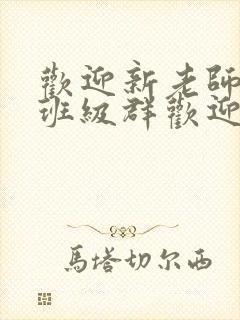 歡迎新老師
班級群歡迎
馬塔切尔西